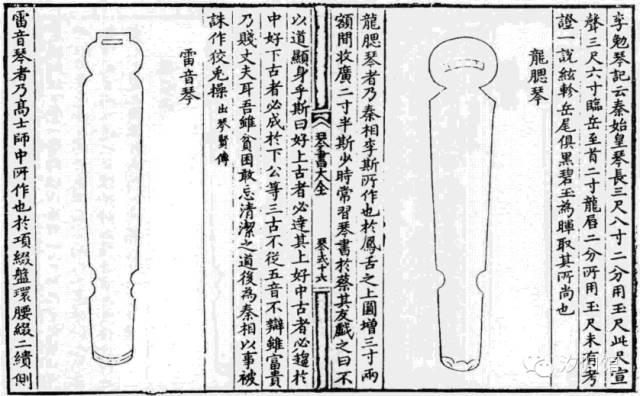 李勉琴記云秦始皇琴長三尺八寸二分用玉尺此尺宣
聲三尺六寸臨岳至首二寸龍唇二分所用玉尺未有考
證一說絃軫岳尾俱黑碧玉為暉取其所尚也
龍腮琴
龍腮琴者乃秦相李斯所作也於鳳舌之上圓增三寸兩
額間收廣二寸半斯少時常習琴書於蔡其友戲之曰不
琴書大全
琴
以道顯身乎斯曰好上古者必達其上好中古者必趨於
中好下古者必成於下公等三古不從五音不辯雖富貴
乃賤丈夫耳吾雖貧困敢忘清潔之道後為秦相以事被
誅作狡兎操出琴賢傳
雷音琴
雷音琴者乃高士師中所作也於項綴盤環腰綴二繢側